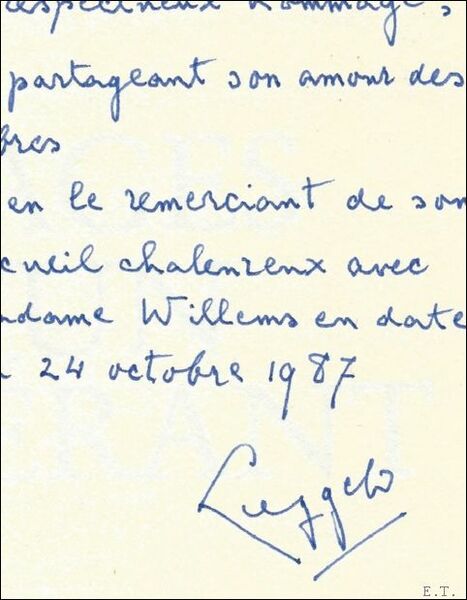 respectueux hommage,
partageant son amour des
bres
en le remerciant de son
cueil chaleureux avec
ndame Willems en date
24 octobre 1987
E.T.